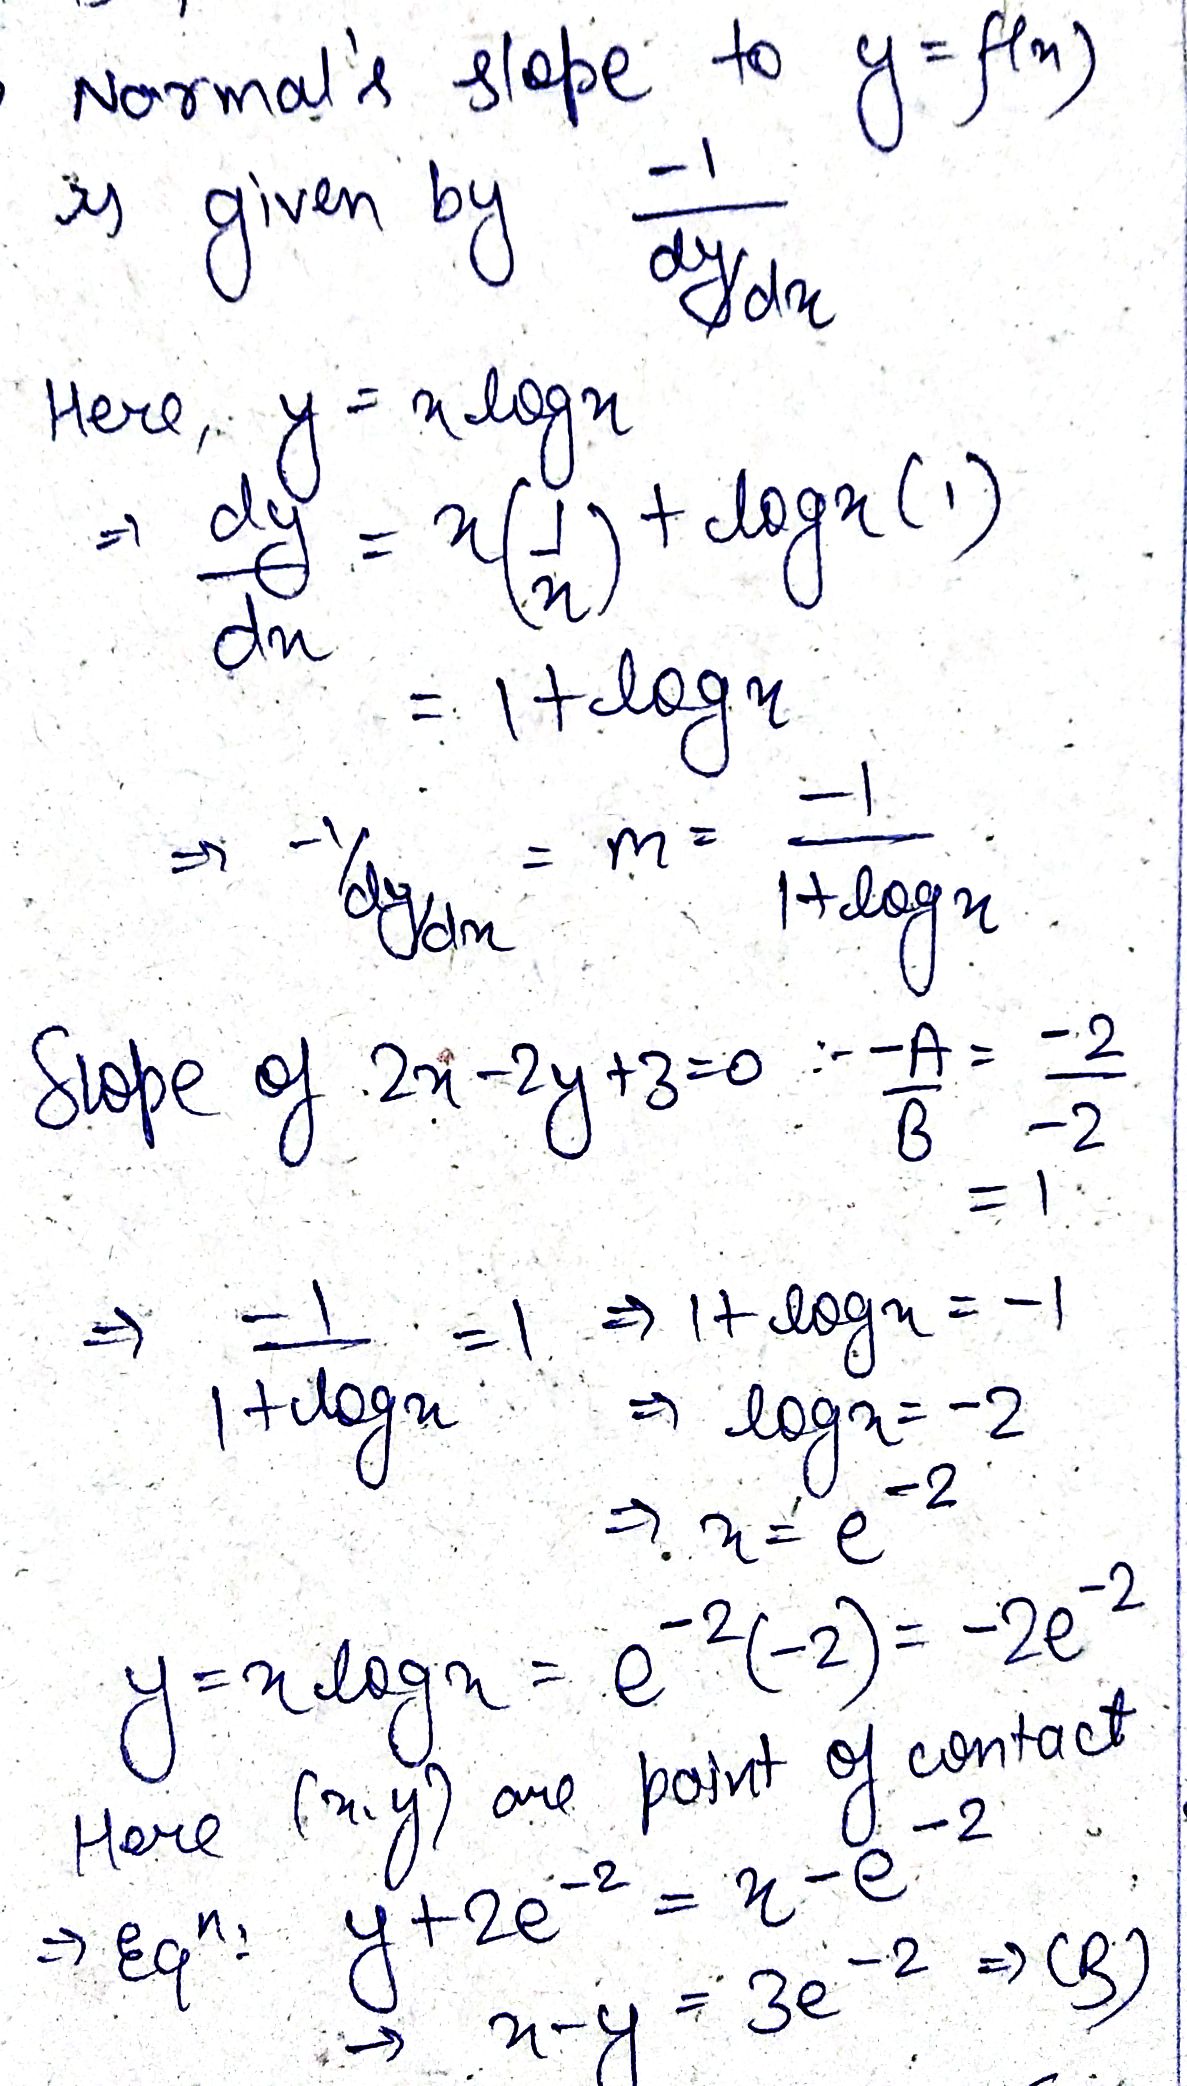 Normal's slope to y = f(x)
is given by -1/(dy/dx)
Here, y = x log x
⇒ dy/dx = x(1/x) + log x (1)
= 1 + log x
⇒ -1/(dy/dx) = m = -1/(1 + log x)
Slope of 2x - 2y + 3 = 0 :- -A/B = -2/-2
= 1
⇒ -1/(1 + log x) = 1 ⇒ 1 + log x = -1
⇒ log x = -2
⇒ x = e^-2
y = x log x = e^-2(-2) = -2e^-2
Here (x, y) are point of contact
⇒ Eqn: y + 2e^-2 = x - e^-2
→ x - y = 3e^-2 ⇒ (B)